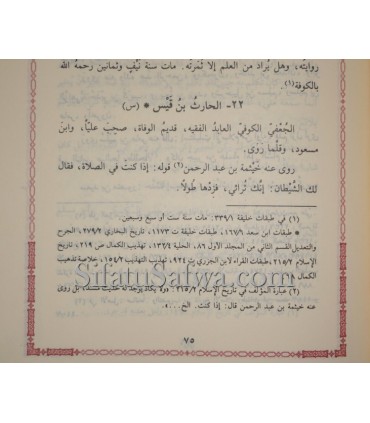 روايته، وهل يُراد من العلم إلا ثمرته. مات سنة نيّف وثمانين رحمهُ الله
بالكوفة(١).
٢٢- الحارثُ بنُ قَيْس * (س)
الجُعْفيّ الكوفيّ العابدُ الفقيه، قديمُ الوفاة، صحِبَ عليّاً، وابن
مسعود، وقلّما رَوى.
روى عنه خَيْثمة بن عبد الرحمن(٢) قوله: إذا كنتَ في الصلاة، فقال
لك الشّيطان: إنّك تُرائي، فزِدْها طُولاً.
(١) في طبقات خليفة ٣٣٩/١: مات سنة ست أو سبع وسبعين.
* طبقات ابن سعد ١٦٧/٦، طبقات خليفة ت ١١٧٣، تاريخ البخاري ٢٧٩/٢، الجرح
والتعديل القسم الثاني من المجلد الأول ٨٦، الحلية ١٣٢/٤، تهذيب الكمال ص ٢١٩، تاريخ
الإسلام ٢١٥/٢، طبقات القراء لابن الجزري ت ٩٢٤، تهذيب التهذيب ١٥٤/٢، خلاصة تذهيب
الكمال
SifatuSafwa.com
(٢) عبارة المؤلف في تاريخ الإسلام ٢١٥/٢: «ولا يكاد يوجد له حديث مسند، بل روى
عنه خيثمة بن عبد الرحمن قال: إذا كنت. الخ...».
٧٥